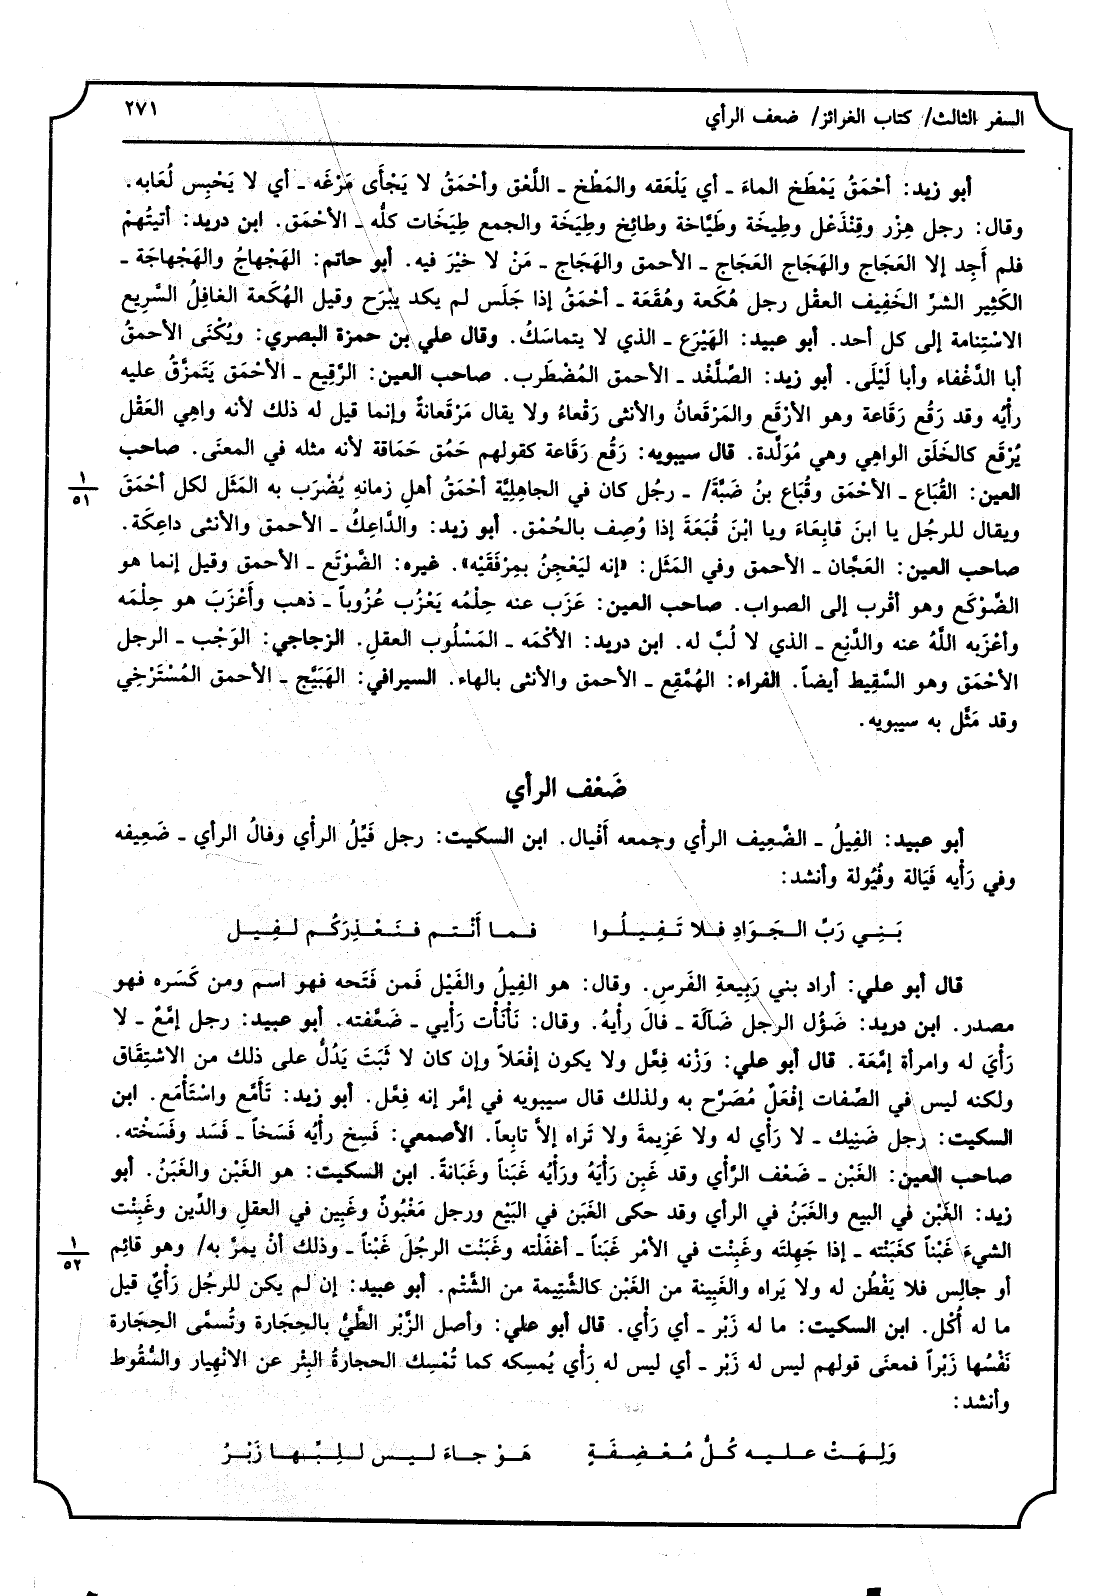 السفر الثالث/ كتاب الغرائز/ ضعف الرأي
٢٧١
أبو زيد: أحْمَقُ يَمْطَخ الماءَ ـ أي يَلْعَقه والمَطْخ ـ اللَّعْق وأحْمَقُ لا يَجْأَى مَرْغَه ـ أي لا يَحْبِس لُعَابه.
وقال: رجل هِزْر وقِنْذَعْل وطِيخَة وطَيَّاخة وطائِخ وطِيَخَة والجمع طِيَخَات كلُّه ـ الأحْمَق. ابن دريد: أتيتُهمْ
فلم أَجِد إلا العَجَاج والهَجَاج العَجَاج ـ الأحمق والهَجَاج ـ مَنْ لا خيْرَ فيه. أبو حاتم: الهَجْهاجُ والهَجْهاجَة ـ
الكَثِير الشرِّ الخَفِيف العقْل رجل هُكَعة وهُقَعَة ـ أحْمَقُ إذا جَلَس لم يكد يَبْرَح وقيل الهُكَعة الغافِلُ السَّرِيع
الاسْتِنامة إلى كل أحد. أبو عبيد: الهَيْرَع ـ الذي لا يتماسَكُ. وقال علي بن حمزة البصري: ويُكْنَى الأحمقُ
أبا الدَّغْفاء وأبا لَيْلَى. أبو زيد: الصِّلَّغْد ـ الأحمق المُضْطَرب. صاحب العين: الرَّقِيع ـ الأحْمَق يَتَمزَّقُ عليه
رأيُه وقد رَقُع رَقَاعة وهو الأرْقَع والمَرْقَعانُ والأنثى رَقْعاءُ ولا يقال مَرْقَعانةٌ وإنما قيل له ذلك لأنه واهِي العَقْل
يُرْقَع كالخَلَق الواهِي وهي مُوَلَّدة. قال سيبويه: رَقُع رَقَاعة كقولهم حَمُق حَمَاقة لأنه مثله في المعنَى. صاحب
العين: القُبَاع ـ الأحْمَق وقُبَاع بنُ ضَبَّةَ/ ـ رجُل كان في الجاهِليَّة أحْمَقُ أهلِ زمانهِ يُضْرَب به المَثَل لكل أحْمَقَ
١
٥١
ويقال للرجُل يا ابنَ قابِعَاءَ ويا ابْنَ قُبَعَةَ إذا وُصِف بالحُمْق. أبو زيد: والدَّاعِكُ ـ الأحمق والأنثى داعِكَة.
صاحب العين: العَجَّان ـ الأحمق وفي المَثَل: «إنه ليَعْجِنُ بمِرْفَقَيْه». غيره: الضَّوْتَع ـ الأحمق وقيل إنما هو
الضَّوْكَع وهو أقْرب إلى الصواب. صاحب العين: عَزَب عنه حِلْمُه يَعْزُب عُزُوباً ـ ذهب وأَعْزَبَ هو حِلْمَه
وأعْزَبه اللَّهُ عنه والدَّنِع ـ الذي لا لُبَّ له. ابن دريد: الأكْمَه ـ المَسْلُوب العقلِ. الزجاجي: الوَجْب ـ الرجل
الأحْمَق وهو السَّقِيط أيضاً. الفراء: الهُمَّقِع ـ الأحمق والأنثى بالهاء. السيرافي: الهَبَيَّج ـ الأحمق المُسْتَرْخِي
وقد مَثَّل به سيبويه.
ضَعْف الرأي
أبو عبيد: الفِيلُ ـ الضَّعِيف الرأي وجمعه أَفْيال. ابن السكيت: رجل فَيِّلُ الرأْي وفالُ الرأي ـ ضَعِيفه
وفي رَأْيه فَيَالة وفُيُولة وأنشد:
بَنِي رَبِّ الجَوَادِ فلا تَفِيلُوا فما أَنْتم فنَعْذِرَكُم لفِيل
قال أبو علي: أراد بني رَبِيعةِ الفَرَسِ. وقال: هو الفِيلُ والفَيْل فَمن فَتَحه فهو اسم ومن كَسَره فهو
مصدر. ابن دريد: ضَؤُل الرجل ضَآلَة ـ فالَ رأْيهُ. وقال: نَأْنَأْت رَأْيي ـ ضَعَّفته. أبو عبيد: رجل إمَّعٌ ـ لا
رَأْيَ له وامرأة إمَّعَة. قال أبو علي: وَزْنه فِعَّل ولا يكون إفْعَلاً وإن كان لا ثَبَتَ يَدُلُّ على ذلك من الاشتِقَاق
ولكنه ليس في الصِّفات إفْعَلٌ مُصَرَّح به ولذلك قال سيبويه في إمَّر إنه فِعَّل. أبو زيد: تَأَمَّع واسْتَأْمَع. ابن
السكيت: رجل ضَنِيك ـ لا رَأْي له ولا عَزِيمةَ ولا تَراه إلاَّ تابِعاً. الأصمعي: فَسِخ رأيُه فَسَخاً ـ فَسَد وفَسَخْته.
صاحب العين: الغَبْن ـ ضَعْف الرَّأْي وقد غَبِن رَأْيَهُ ورَأْيُه غَبَناً وغَبَانةً. ابن السكيت: هو الغَبْن والغَبَنُ. أبو
زيد: الغَبْن في البيع والغَبَنُ في الرأي وقد حكى الغَبَن في البَيْع ورجل مَغْبُونٌ وغَبِين في العقلِ والدَّين وغَبِنْت
الشيءَ غَبْناً كغَبَنْته ـ إذا جَهِلتَه وغَبِنْت في الأمْر غَبَناً ـ أغفَلْته وغَبَنْت الرجُلَ غَبْناً ـ وذلك أنْ يمرَّ به/ وهو قائِم
١
٥٢
أو جالِس فلا يَفْطُن له ولا يَراه والغَبِينة من الغَبْن كالشَّتِيمة من الشَّتْم. أبو عبيد: إن لم يكن للرجُل رَأْيٌ قيل
ما له أُكْل. ابن السكيت: ما له زَبْر ـ أي رَأْي. قال أبو علي: وأصل الزَّبْر الطَّيُّ بالحِجَارة وتُسمَّى الحِجَارة
نَفْسُها زَبْراً فمعنَى قولهم ليس له زَبْر ـ أي ليس له رَأْي يُمسِكه كما تُمْسِك الحجارةُ البِئْر عن الانْهِيار والسُّقُوط
وأنشد:
وَلِهَتْ عليه كُلُّ مُعْصِفَةٍ هَوْجاءَ ليس للِبِّها زَبْرُ